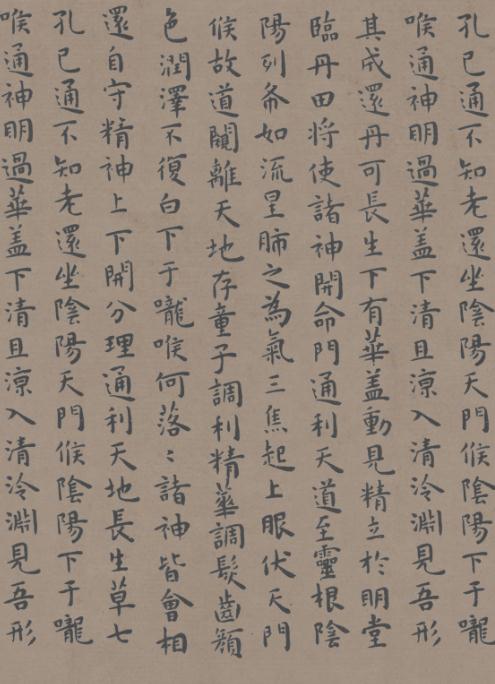 孔已通不知老還坐陰陽天門候陰陽下于嚨
喉通神明過華盖下清且涼入清泠淵見吾形
其成還丹可長生下有華盖動見精立於明堂
臨丹田将使諸神開命門通利天道至靈根陰
陽列布如流星肺之為氣三焦起上服伏天門
候故道闚離天地存童子調利精華調髮齒顏
色潤澤不復白下于嚨喉何落〻諸神皆會相
還自守精神上下開分理通利天地長生草七
孔已通不知老還坐陰陽天門候陰陽下于嚨
喉通神明過華盖下清且涼入清泠淵見吾形